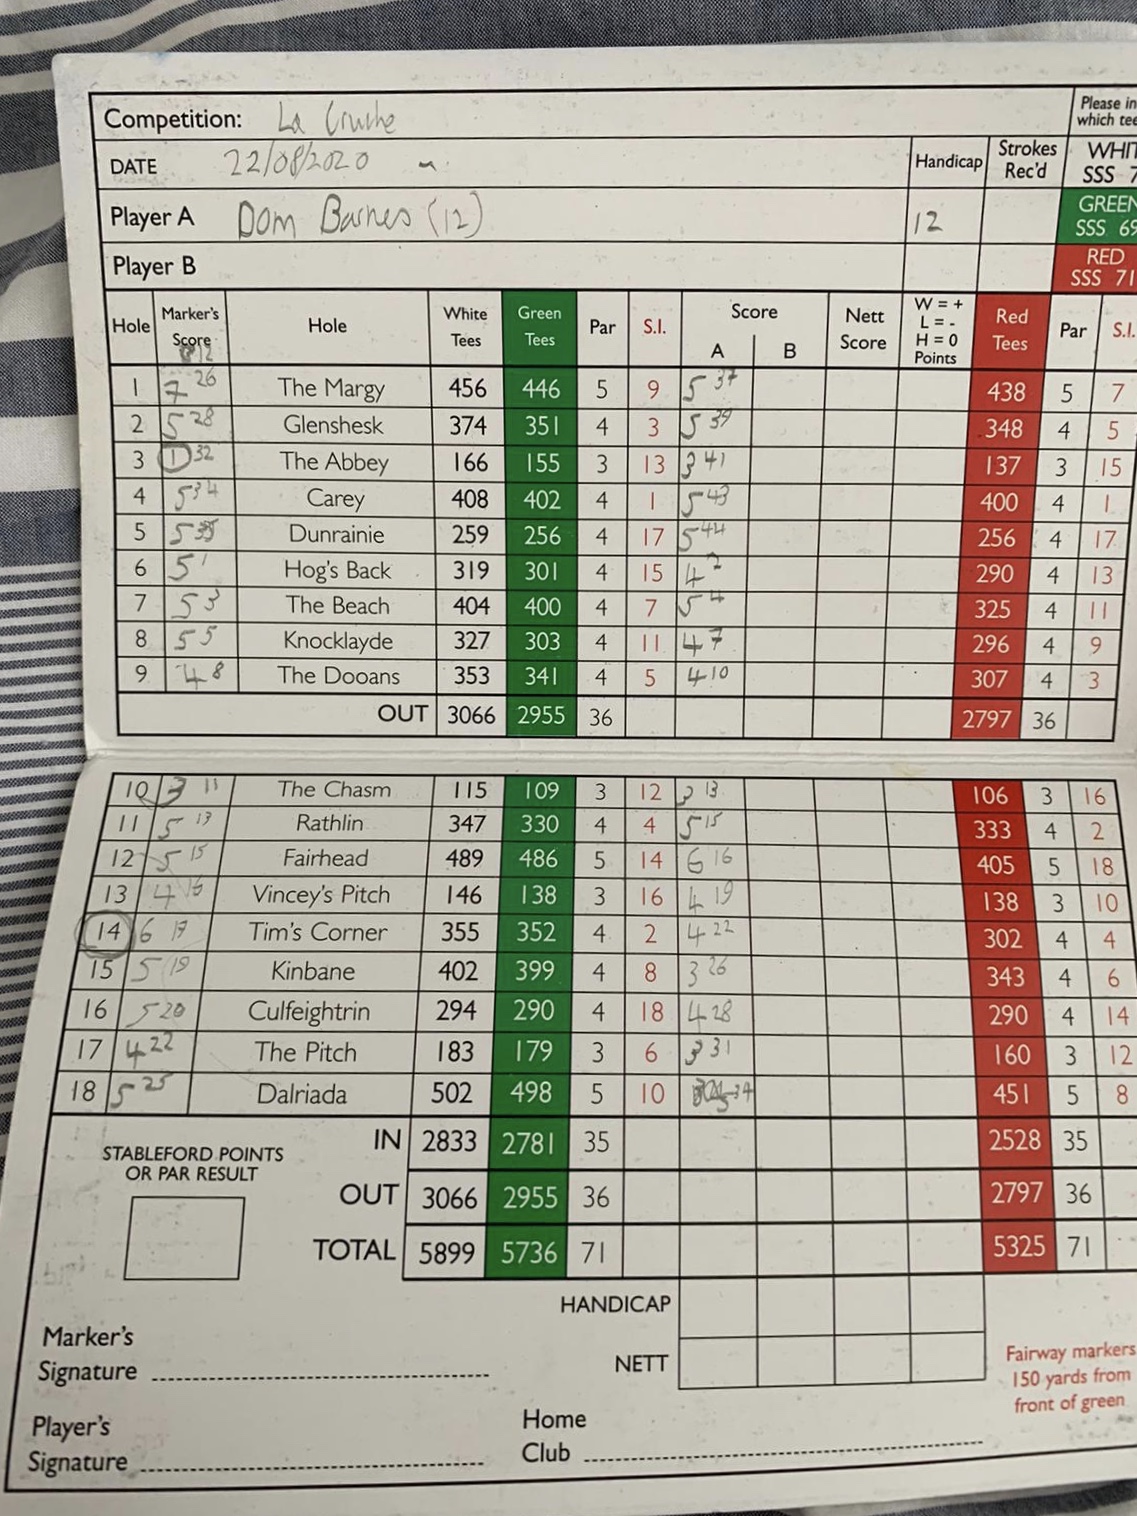 Competition: La Cruche
Please in
which tee
DATE 22/08/2020
Handicap Strokes Rec'd WHIT SSS 7
Player A Dom Barnes (12) 12 GREEN SSS 69
Player B RED SSS 71
Hole Marker's Score Hole White Tees Green Tees Par S.I. Score A B Nett Score W = + L = - H = 0 Points Red Tees Par S.I.
12
1 7 26 The Margy 456 446 5 9 5 37 438 5 7
2 5 28 Glenshesk 374 351 4 3 5 39 348 4 5
3 1 32 The Abbey 166 155 3 13 3 41 137 3 15
4 5 34 Carey 408 402 4 1 5 43 400 4 1
5 5 35 Dunrainie 259 256 4 17 5 44 256 4 17
6 5 1 Hog's Back 319 301 4 15 4 2 290 4 13
7 5 3 The Beach 404 400 4 7 5 4 325 4 11
8 5 5 Knocklayde 327 303 4 11 4 7 296 4 9
9 4 8 The Dooans 353 341 4 5 4 10 307 4 3
OUT 3066 2955 36 2797 36
10 3 11 The Chasm 115 109 3 12 3 13 106 3 16
11 5 13 Rathlin 347 330 4 4 5 15 333 4 2
12 5 15 Fairhead 489 486 5 14 6 16 405 5 18
13 4 16 Vincey's Pitch 146 138 3 16 4 19 138 3 10
14 6 17 Tim's Corner 355 352 4 2 4 22 302 4 4
15 5 19 Kinbane 402 399 4 8 3 26 343 4 6
16 5 20 Culfeightrin 294 290 4 18 4 28 290 4 14
17 4 22 The Pitch 183 179 3 6 3 31 160 3 12
18 5 25 Dalriada 502 498 5 10 5 34 451 5 8
IN 2833 2781 35 2528 35
STABLEFORD POINTS
OR PAR RESULT
OUT 3066 2955 36 2797 36
TOTAL 5899 5736 71 5325 71
HANDICAP
NETT
Marker's
Signature
Fairway markers
150 yards from
front of green
Player's
Signature
Home
Club